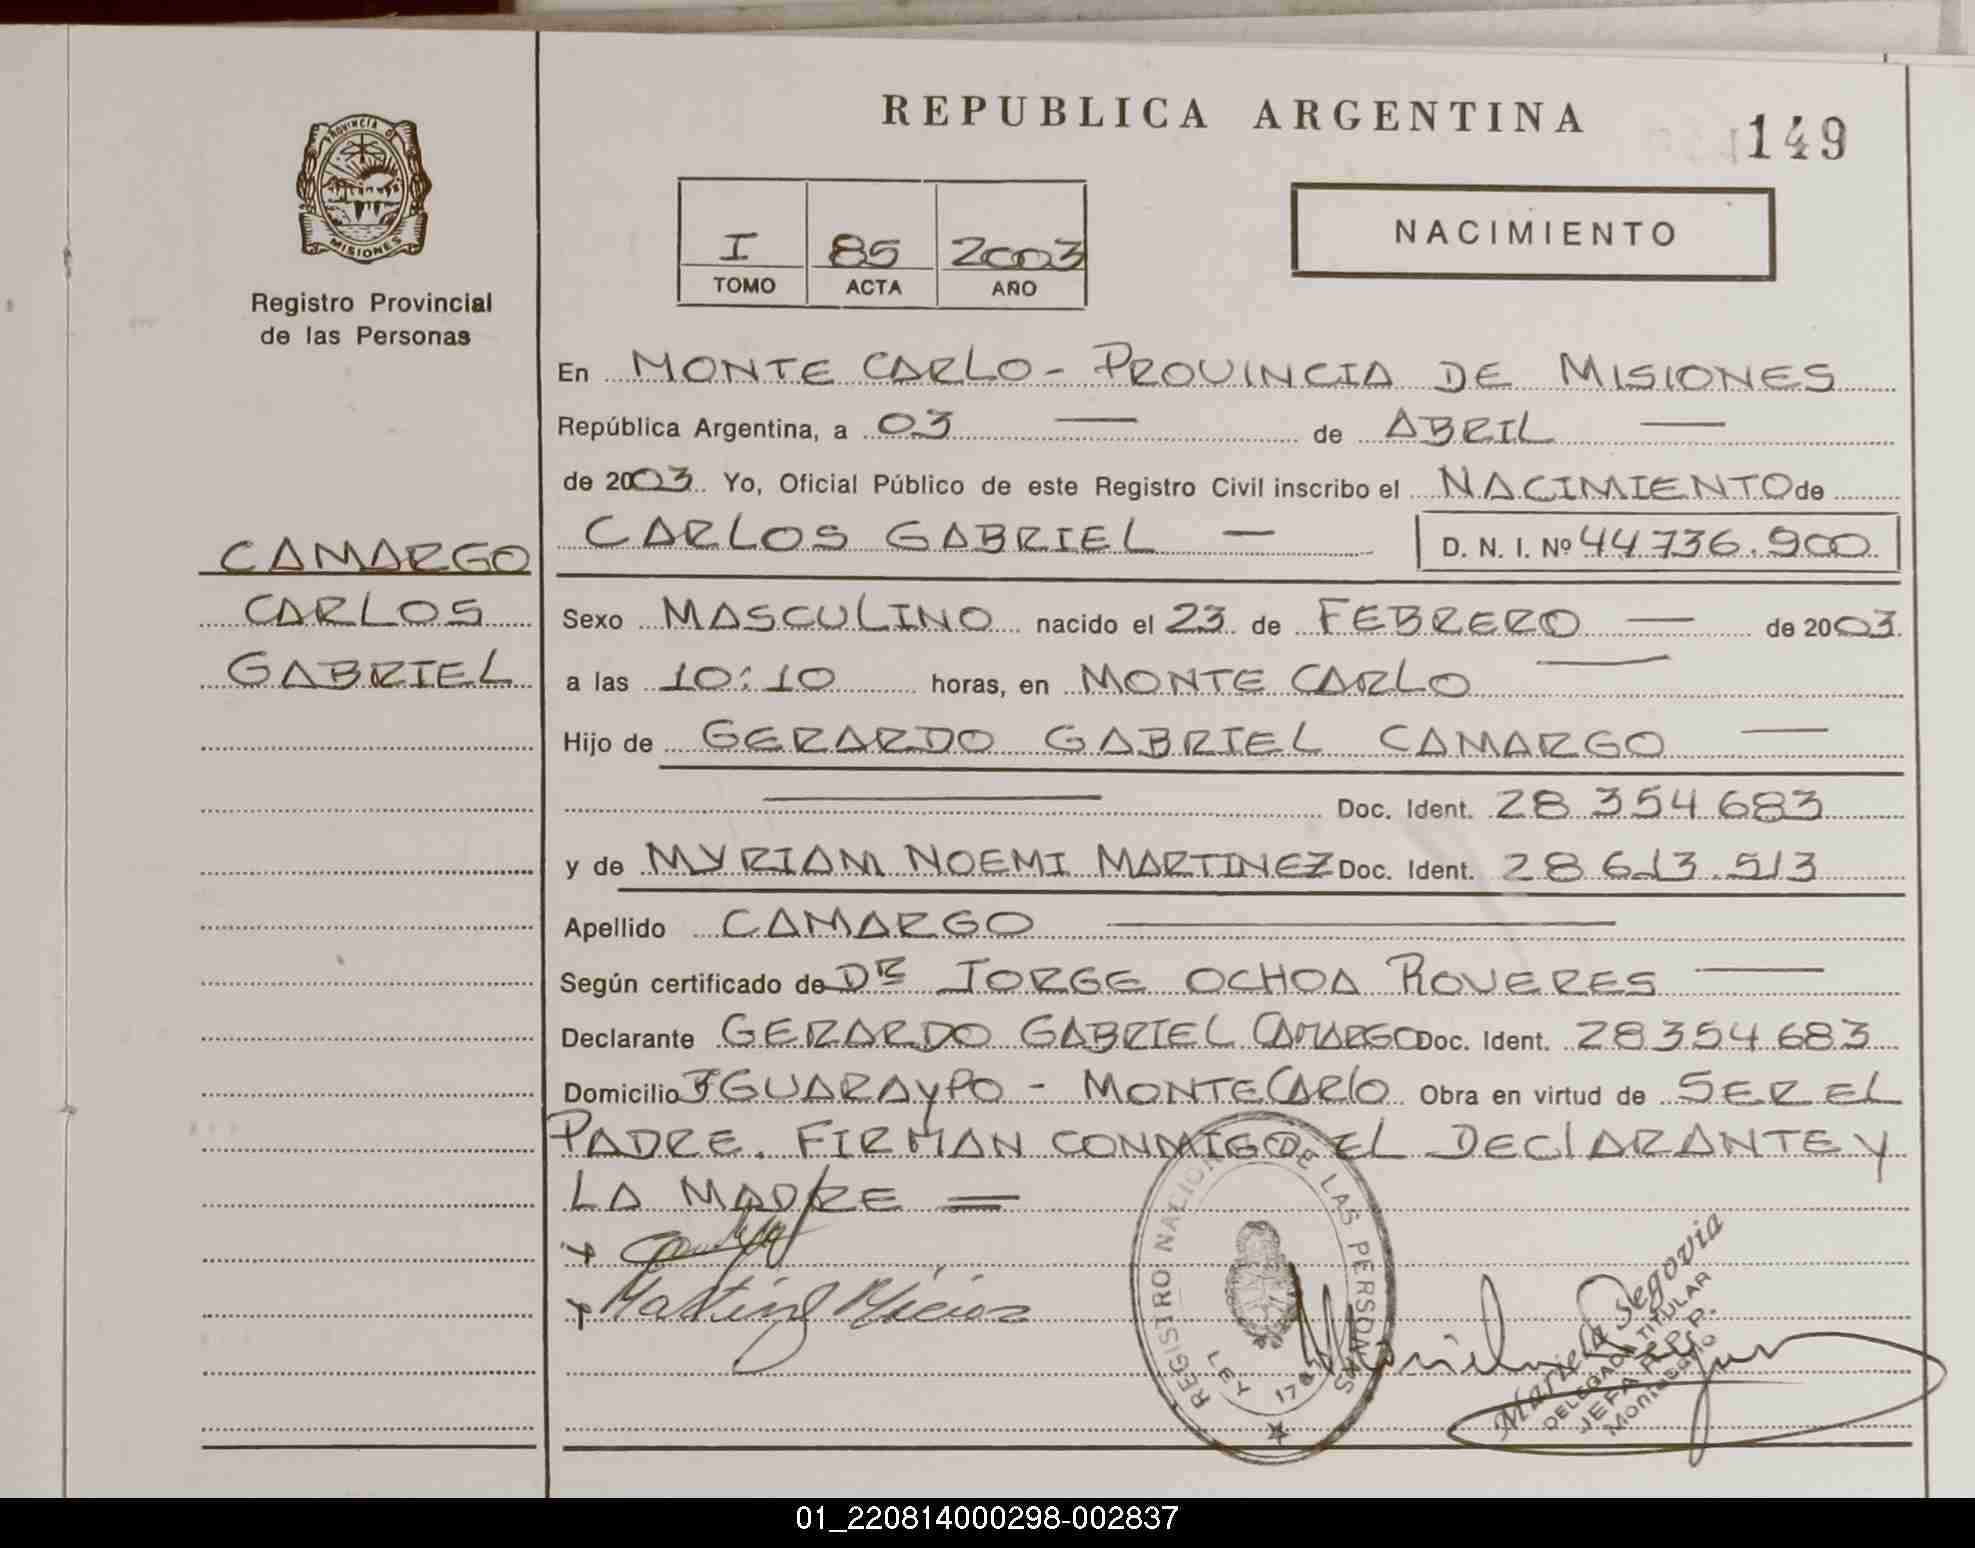 REPUBLICA ARGENTINA
149
PROVINCIA DE
MISIONES
Registro Provincial
de las Personas
I 85 2003
TOMO ACTA AÑO
NACIMIENTO
En MONTE CARLO - PROVINCIA DE MISIONES
República Argentina, a 03 — de ABRIL —
de 2003. Yo, Oficial Público de este Registro Civil inscribo el NACIMIENTO de
CARLOS GABRIEL — D. N. I. Nº 44.736.900
CAMARGO
CARLOS
GABRIEL
Sexo MASCULINO nacido el 23 de FEBRERO — de 2003.
a las 10:10 horas, en MONTE CARLO —
Hijo de GERARDO GABRIEL CAMARGO —
— Doc. Ident. 28.354.683
y de MYRIAM NOEMI MARTINEZ Doc. Ident. 28.613.513
Apellido CAMARGO —
Según certificado de DR JORGE OCHOA ROVERES —
Declarante GERARDO GABRIEL CAMARGO Doc. Ident. 28354683
Domicilio GUARAYPO - MONTECARLO Obra en virtud de SER EL
PADRE. FIRMAN CONMIGO EL DECLARANTE Y
LA MADRE =
REGISTRO NACIONAL DE LAS PERSONAS
LEY
Mariela Segovia
DELEGADA TITULAR
JEFA R.P.P.
Montecarlo
01_220814000298-002837